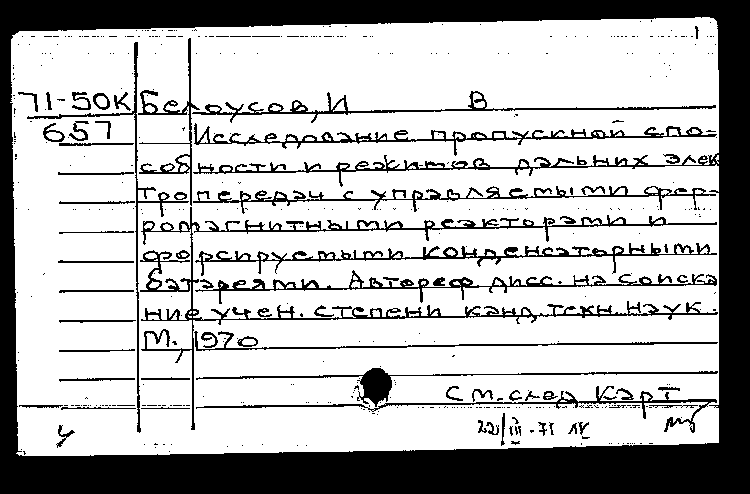 1
71-50К Белоусов, И В
657 Исследование пропускной спо=
собности и режимов дальних элек
тропередач с управляемыми фер=
ромагнитными реакторами и
форсируемыми конденсаторными
батареями. Автореф дисс. на соиска
ние учен. степени канд. техн. наук.
М., 1970
См. след карт
22/III-71